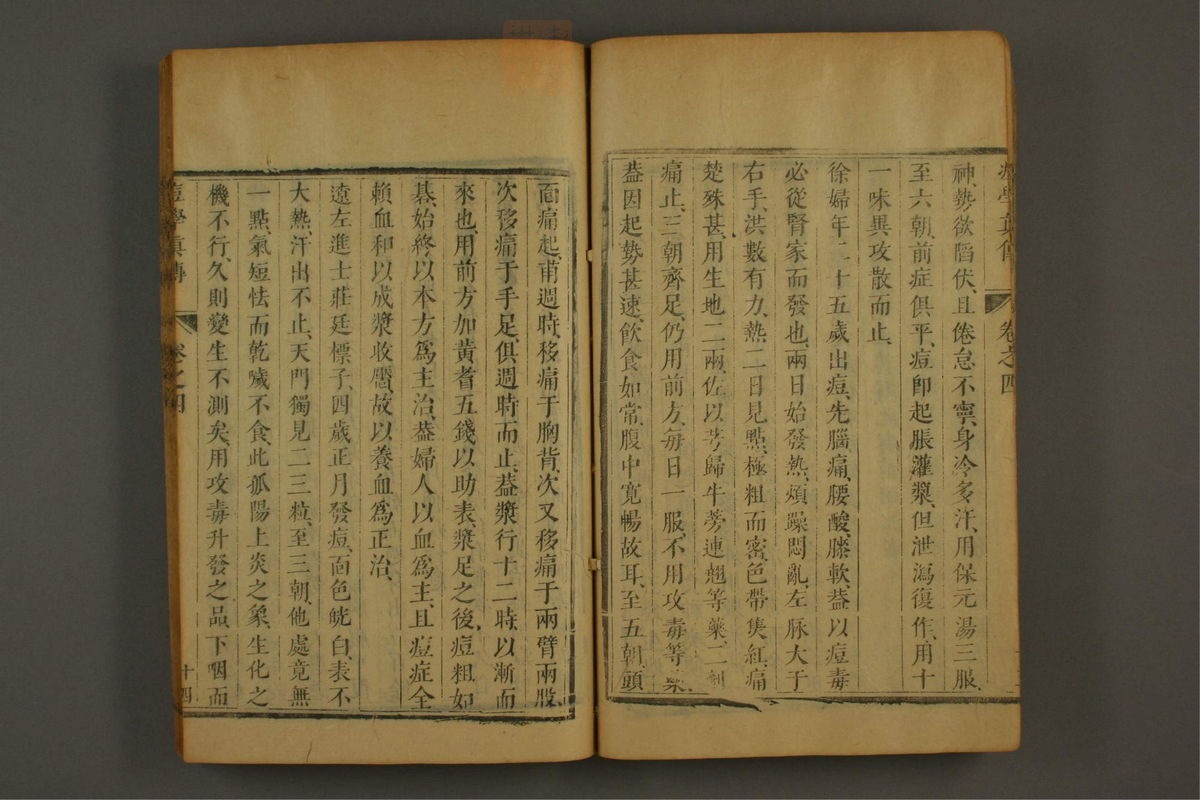 痘學真傳 卷之四
神、勢欲陷伏、且倦怠不寧、身冷多汗、用保元湯三服、
至六朝、前症俱平、痘即起脹灌漿、但泄瀉復作、用十
一味異攻散而止、
徐婦年二十五歲出痘、先腦痛、腰酸、膝軟、葢以痘毒
必從腎家而發也、兩日始發熱、煩躁悶亂、左脉大于
右手、洪數有力、熱二日見點、極粗而密、色帶焦紅、痛
楚殊甚、用生地二兩、佐以芎歸牛蒡連翹等藥、二劑
痛止、三朝齊足、仍用前方、每日一服、不用攻毒等藥、
葢因起勢甚速、飲食如常、腹中寛暢故耳、至五朝、頭
面痛起、甫週時、移痛于胸背、次又移痛于兩臂兩股、
次移痛于手足、俱週時而止、葢漿行十二時、以漸而
來也、用前方加黃耆五錢以助表、漿足之後、痘粗如
棊、始終以本方爲主治、葢婦人以血爲主、且痘症全
賴血和以成漿收靨、故以養血爲正治、
遼左進士莊廷標子、四歲正月發痘、面色皝白、表不
大熱、汗出不止、天門獨見二三粒、至三朝、他處竟無
一點、氣短怯而乾噦不食、此孤陽上炎之象、生化之
機不行、久則變生不測矣、用攻毒升發之品、下咽而
痘學真傳 卷之四 十四